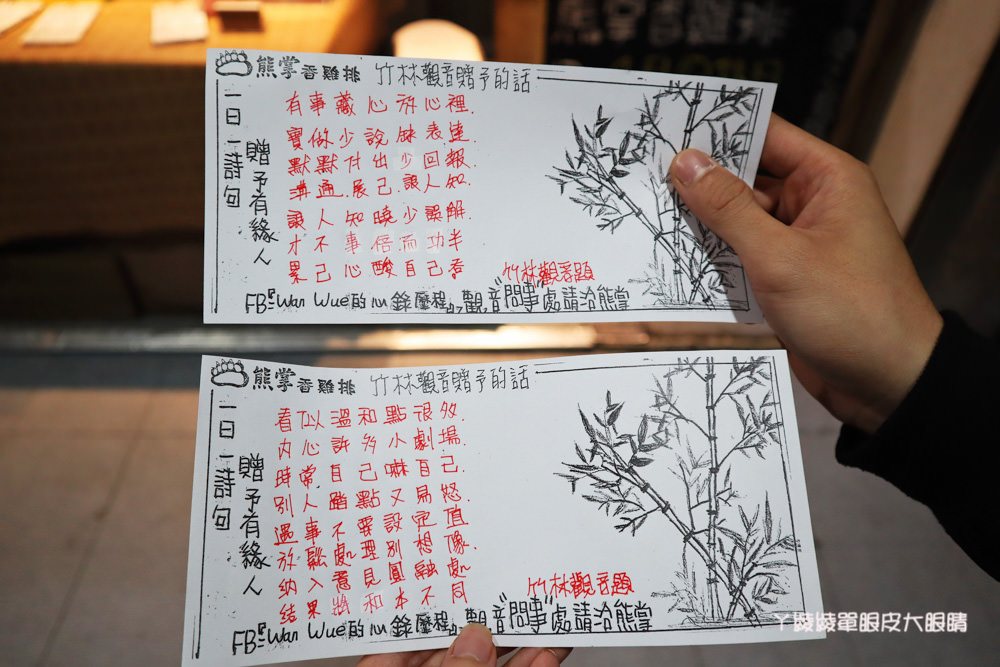 熊掌香雞排 竹林觀音贈予的話
一日一詩句
贈予有緣人
有事藏心放心裡.
實做少說缺表達.
默默付出少回報.
溝通.展己.讓人知.
讓人知曉少誤解.
才不事倍而功半
累己心酸自己忍
竹林觀音題
FB『Wan Wue的心錄歷程』 "觀音"問事"處請洽熊掌
熊掌香雞排 竹林觀音贈予的話
一日一詩句
贈予有緣人
看似溫和點很多.
內心許多小劇場.
時常自己嚇自己.
別人踏點又易怒.
遇事不要設定值
放鬆處理別想像.
納入意見圓融處
結果將和本不同
竹林觀音題
FB『Wan Wue的心錄歷程』 觀音"問事"處請洽熊掌
ㄚ陵陵單眼皮大眼睛